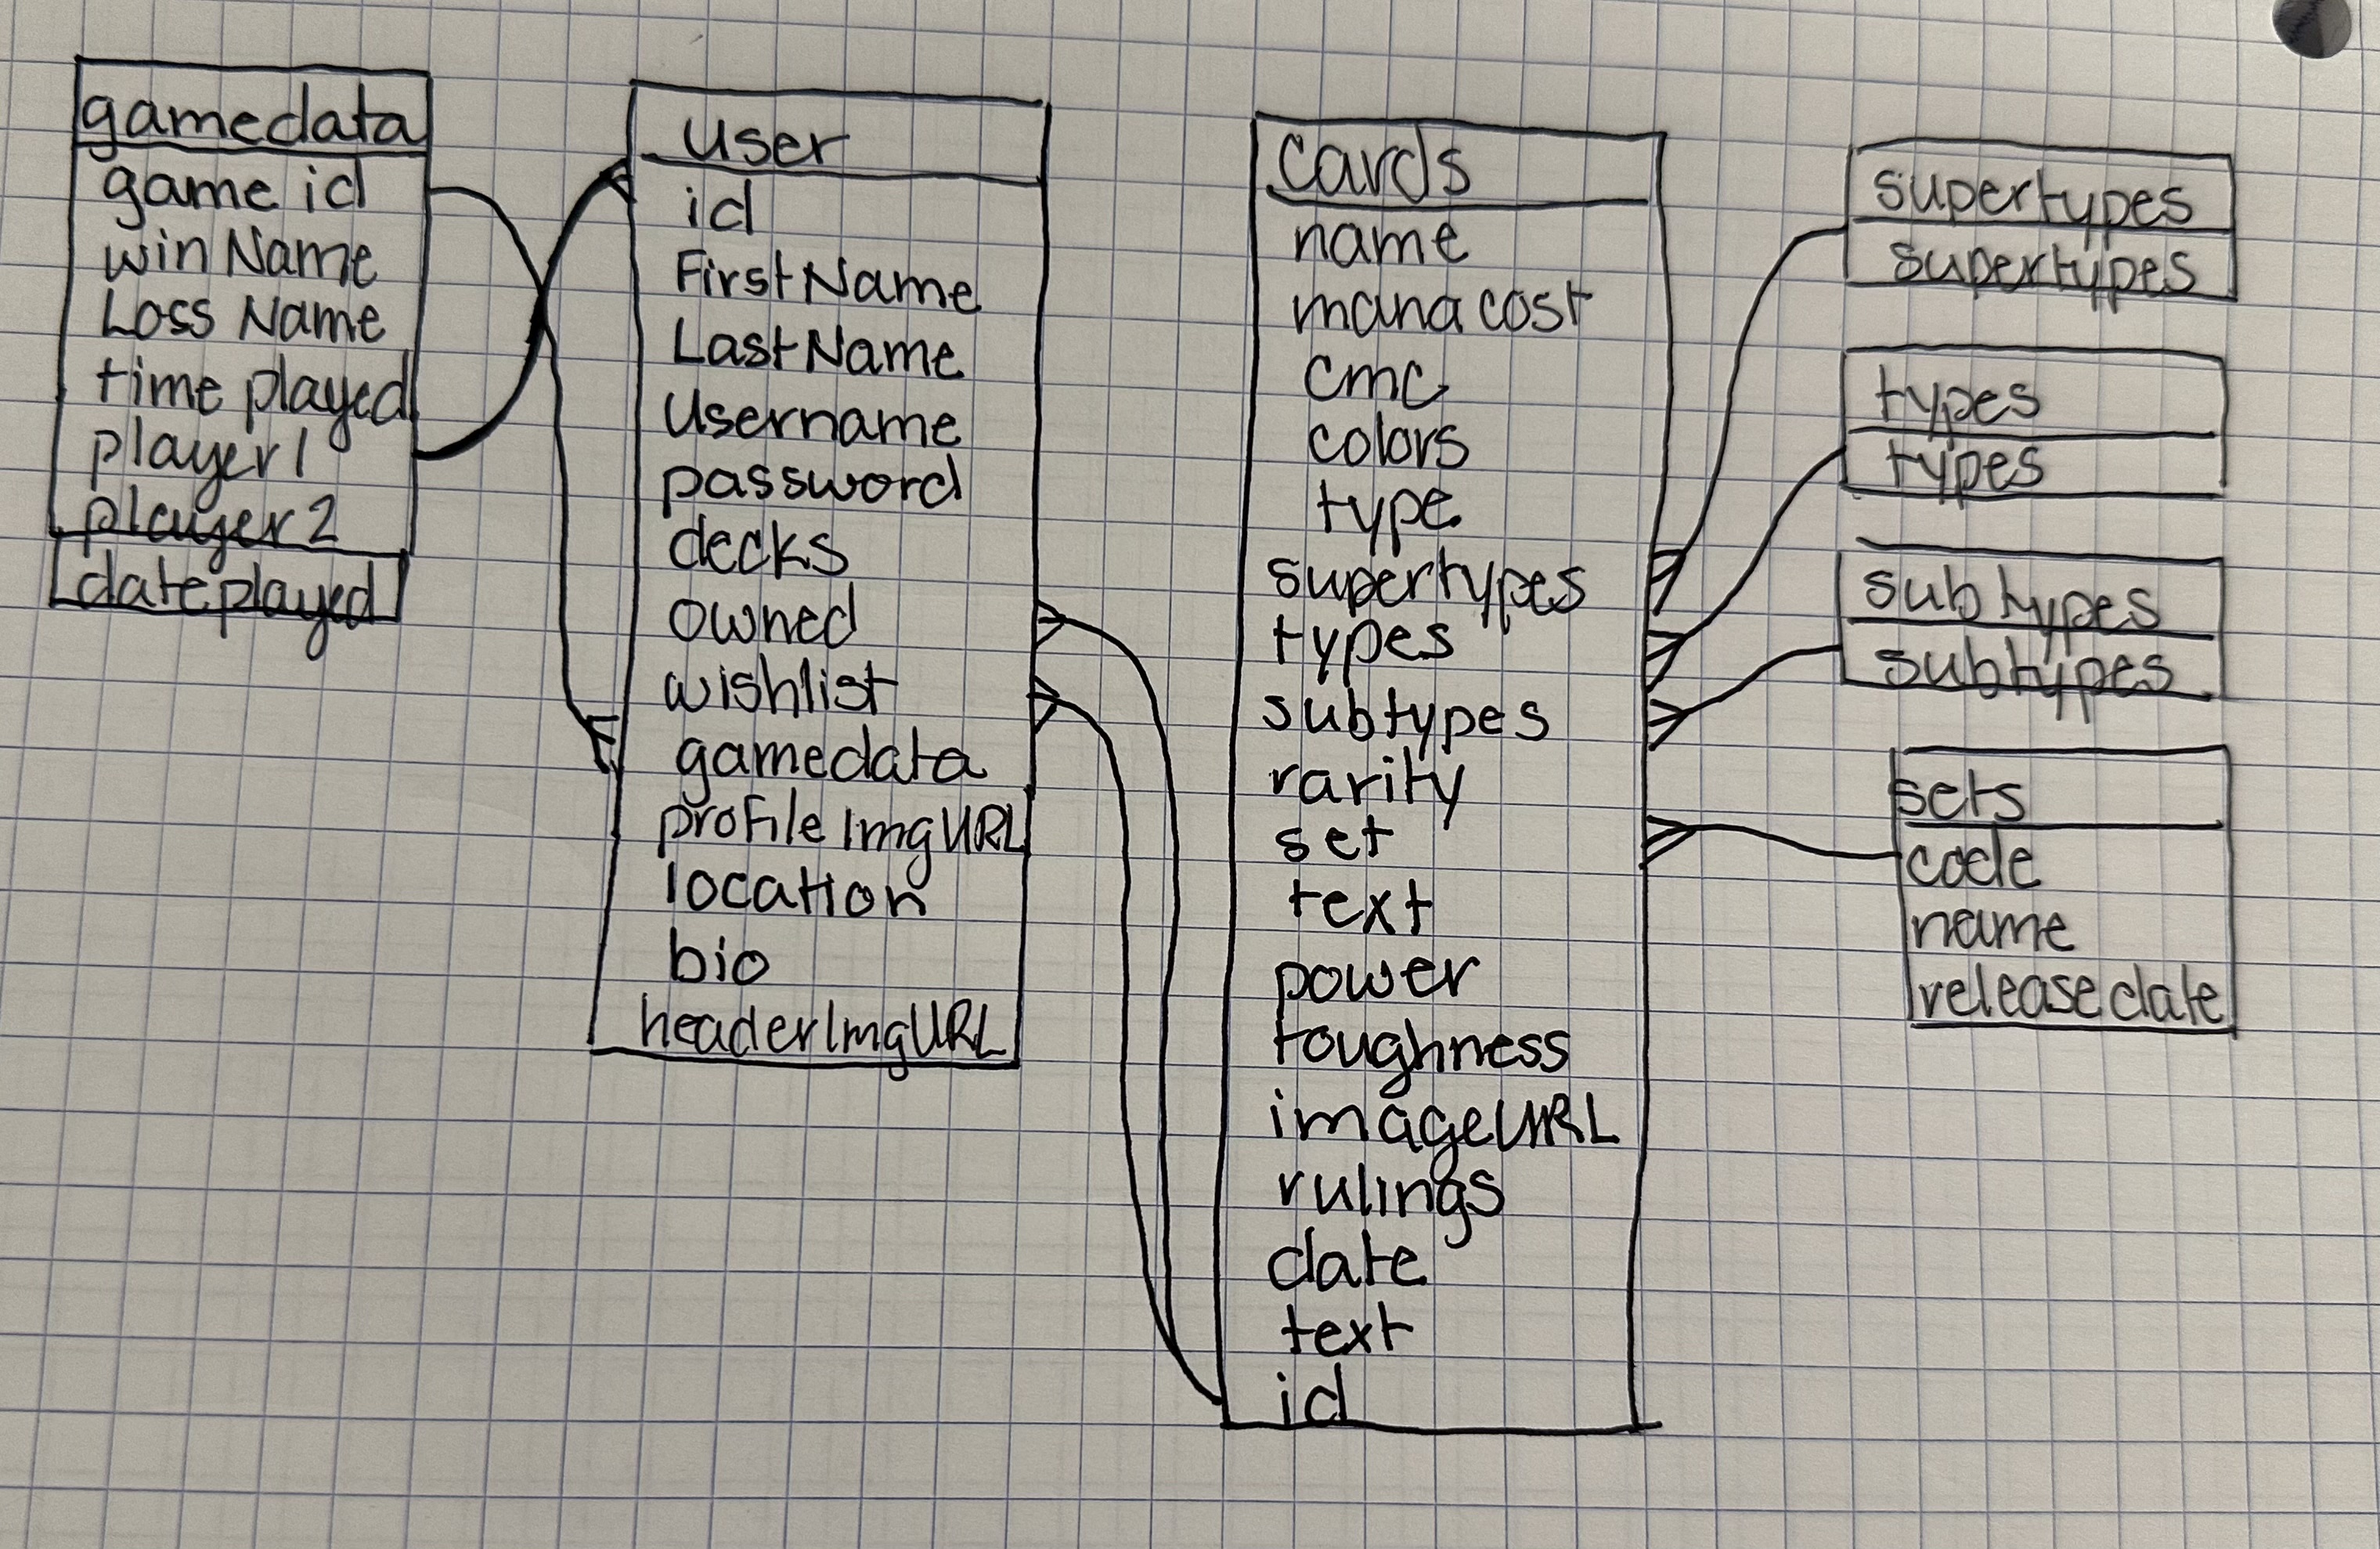 gamedata
game id
win Name
Loss Name
time played
player1
player2
dateplayed
user
id
FirstName
LastName
username
password
decks
owned
wishlist
gamedata
profileImgURL
location
bio
headerImgURL
cards
name
mana cost
cmc
colors
type
supertypes
types
subtypes
rarity
set
text
power
toughness
imageURL
rulings
date
text
id
supertypes
supertypes
types
types
subtypes
subtypes
sets
code
name
releasedate